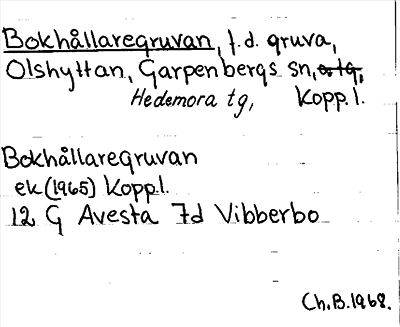 Bokhållaregruvan, f.d. gruva,
Olshyttan, Garpenbergs sn, o tg,
Hedemora tg, Kopp.l.
Bokhållaregruvan
ek (1965) Kopp.l.
12 G Avesta 7d Vibberbo
Ch.B.1968.